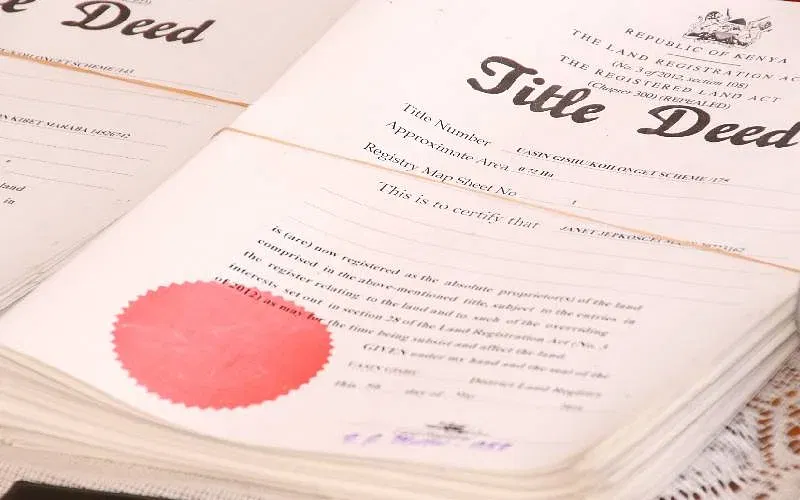 Deed
SCHEME /143
N KIBET MARABA 14526742
land
in
REPUBLIC OF KENYA
THE LAND REGISTRATION AC
(No. 3 of 2012, section 108)
THE REGISTERED LAND ACT
(Chapter 300) (REPEALED)
Title Deed
Title Number UASIN GISHU/KOILONGET SCHEME /175
Approximate Area 0.72 Ha
Registry Map Sheet No 1
This is to certify that JANET JEPKOSGEI
is (are) now registered as the absolute proprietor(s) of the land
comprised in the above-mentioned title, subject to the entries in
the register relating to the land and to such of the overriding
interests set out in section 28 of the Land Registration Act (No. 3
of 2012) as may for the time being subsist and affect the land.
GIVEN under my hand and the seal of the
UASIN GISHU District Land Registry
this day of